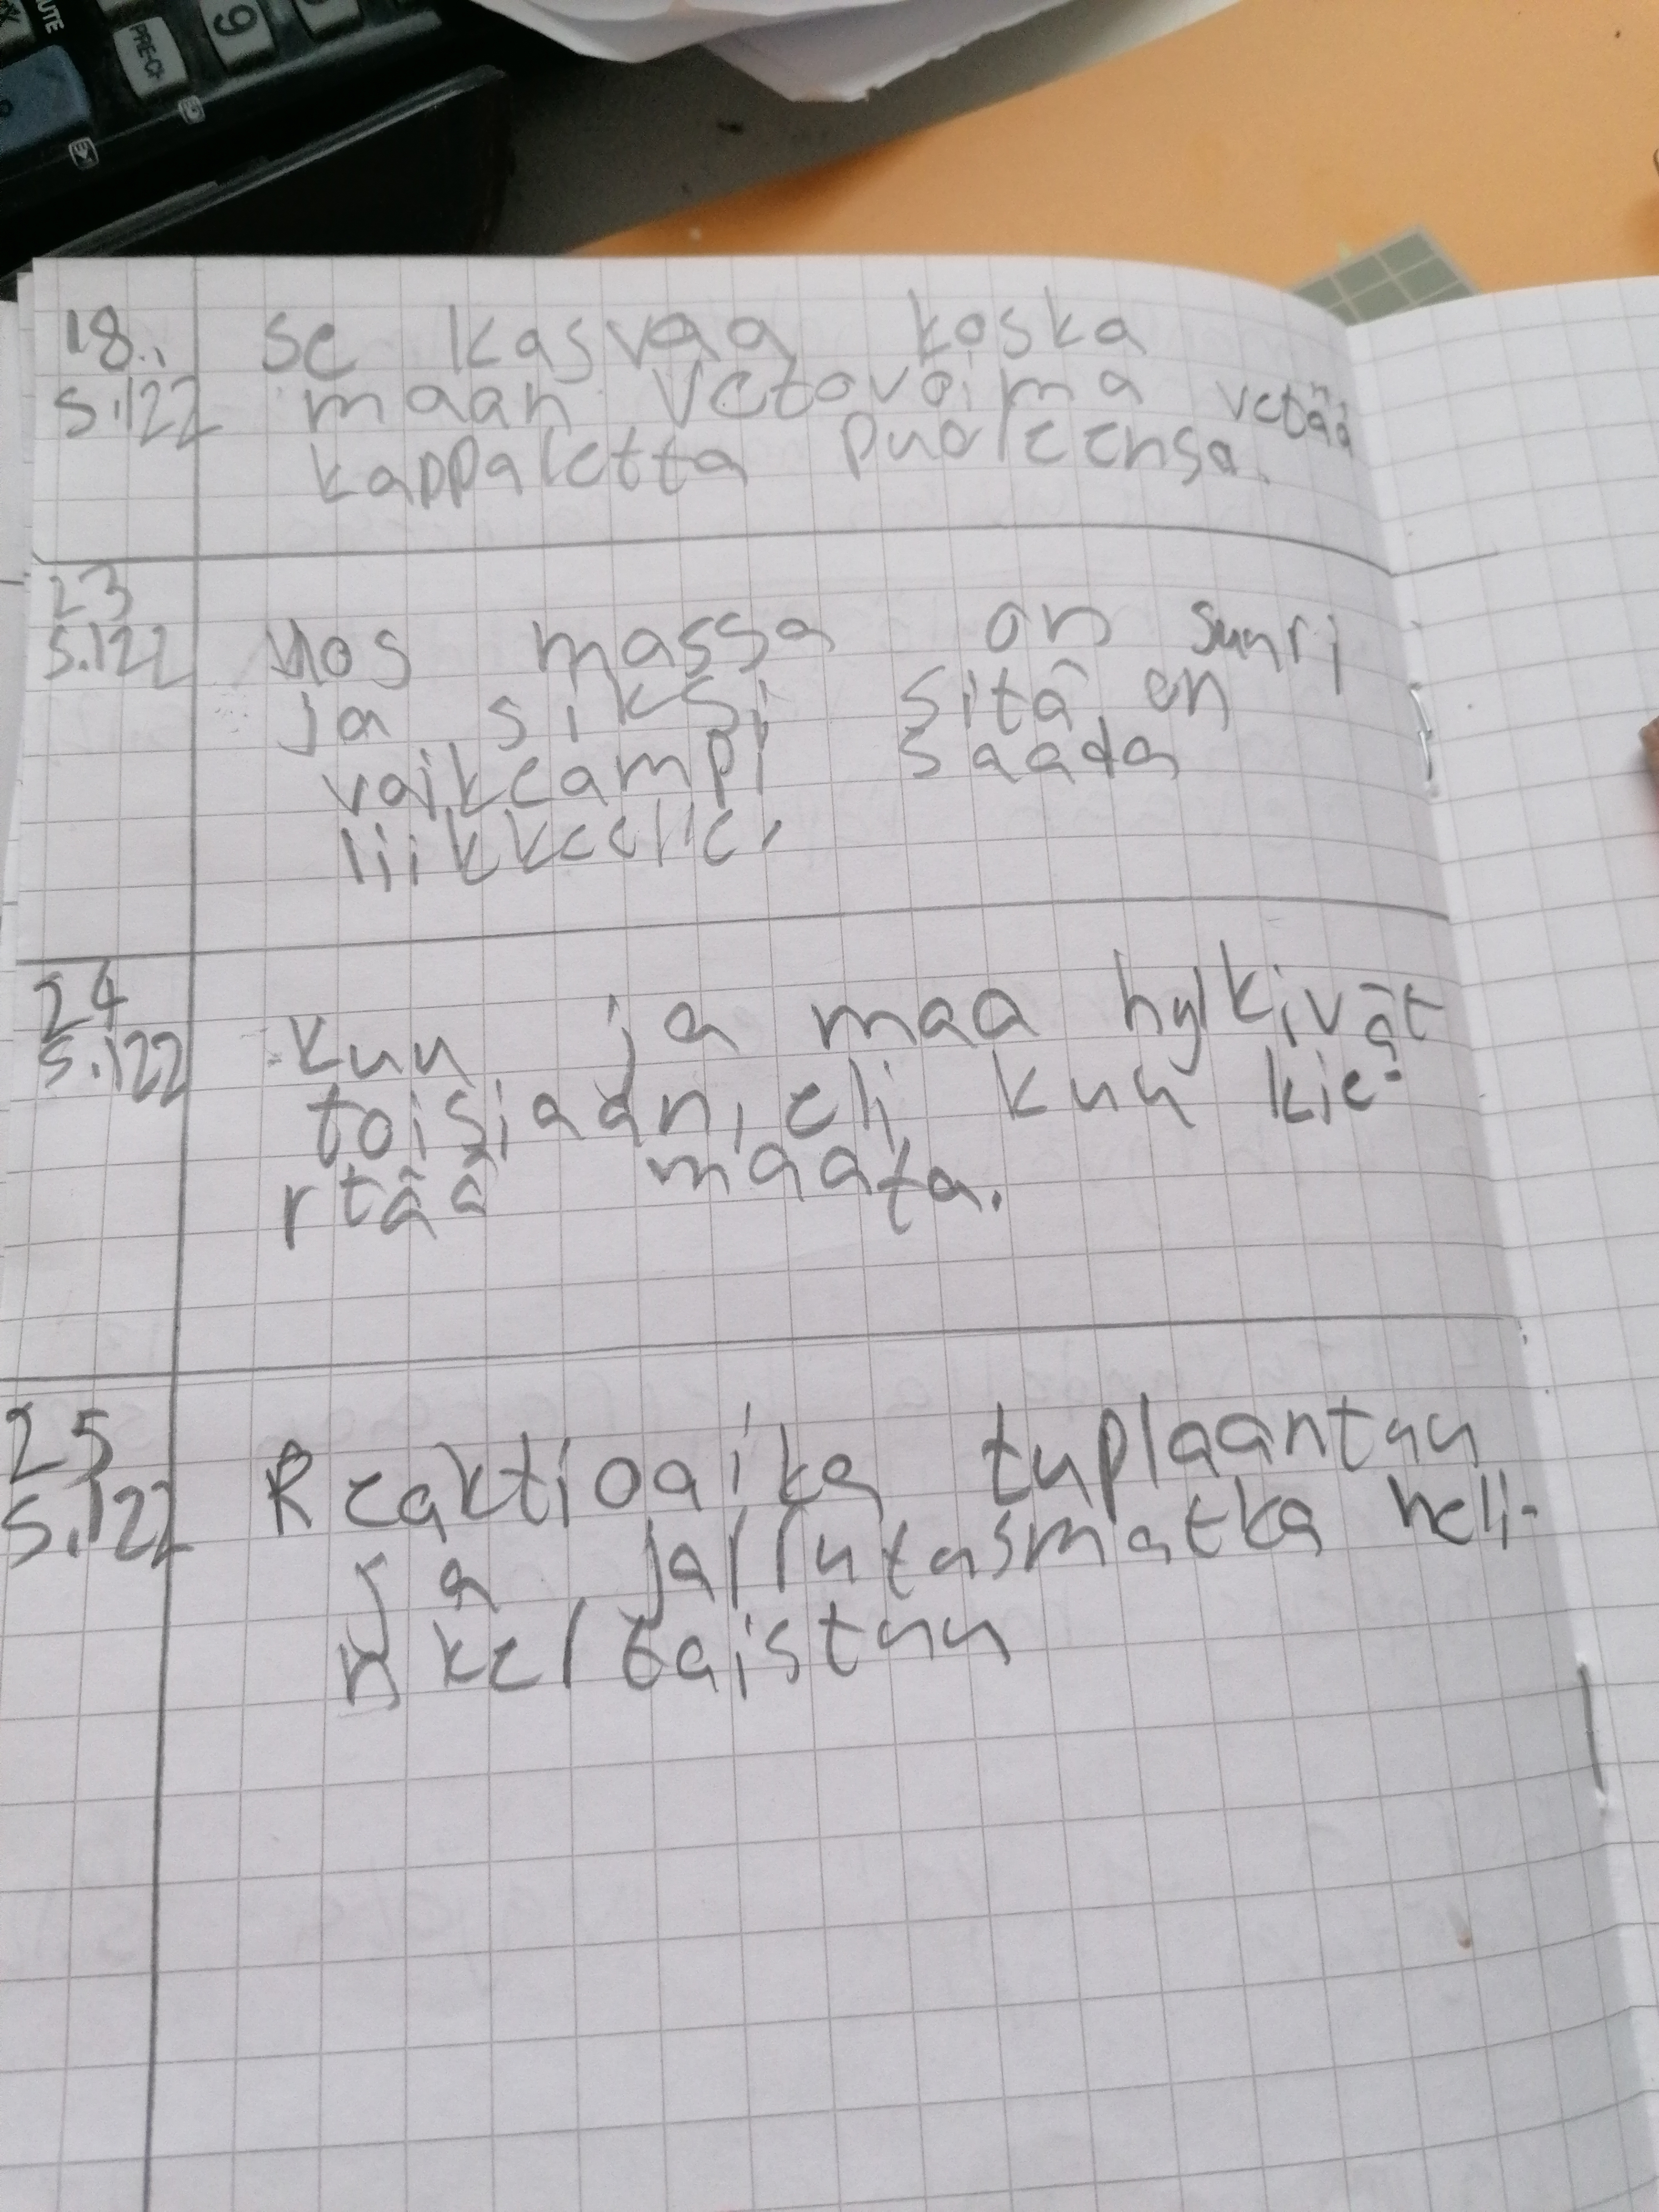 UTE
PRE-CH
9
18.,
s.122
se kasvaa koska
maan vetovoima vetää
kappaletta puoleensa.
23
s.122
Jos massa on suuri
ja siksi sitä on
vaikeampi saada
liikkkeelle,
24
s.122
kuu ja maa hylkivät
toisiaan, eli kuu kie-
rtää maata.
25
s.122
Reaktioaika tuplaantuu
ja jarrutusmatka neli-
nkertaistuu